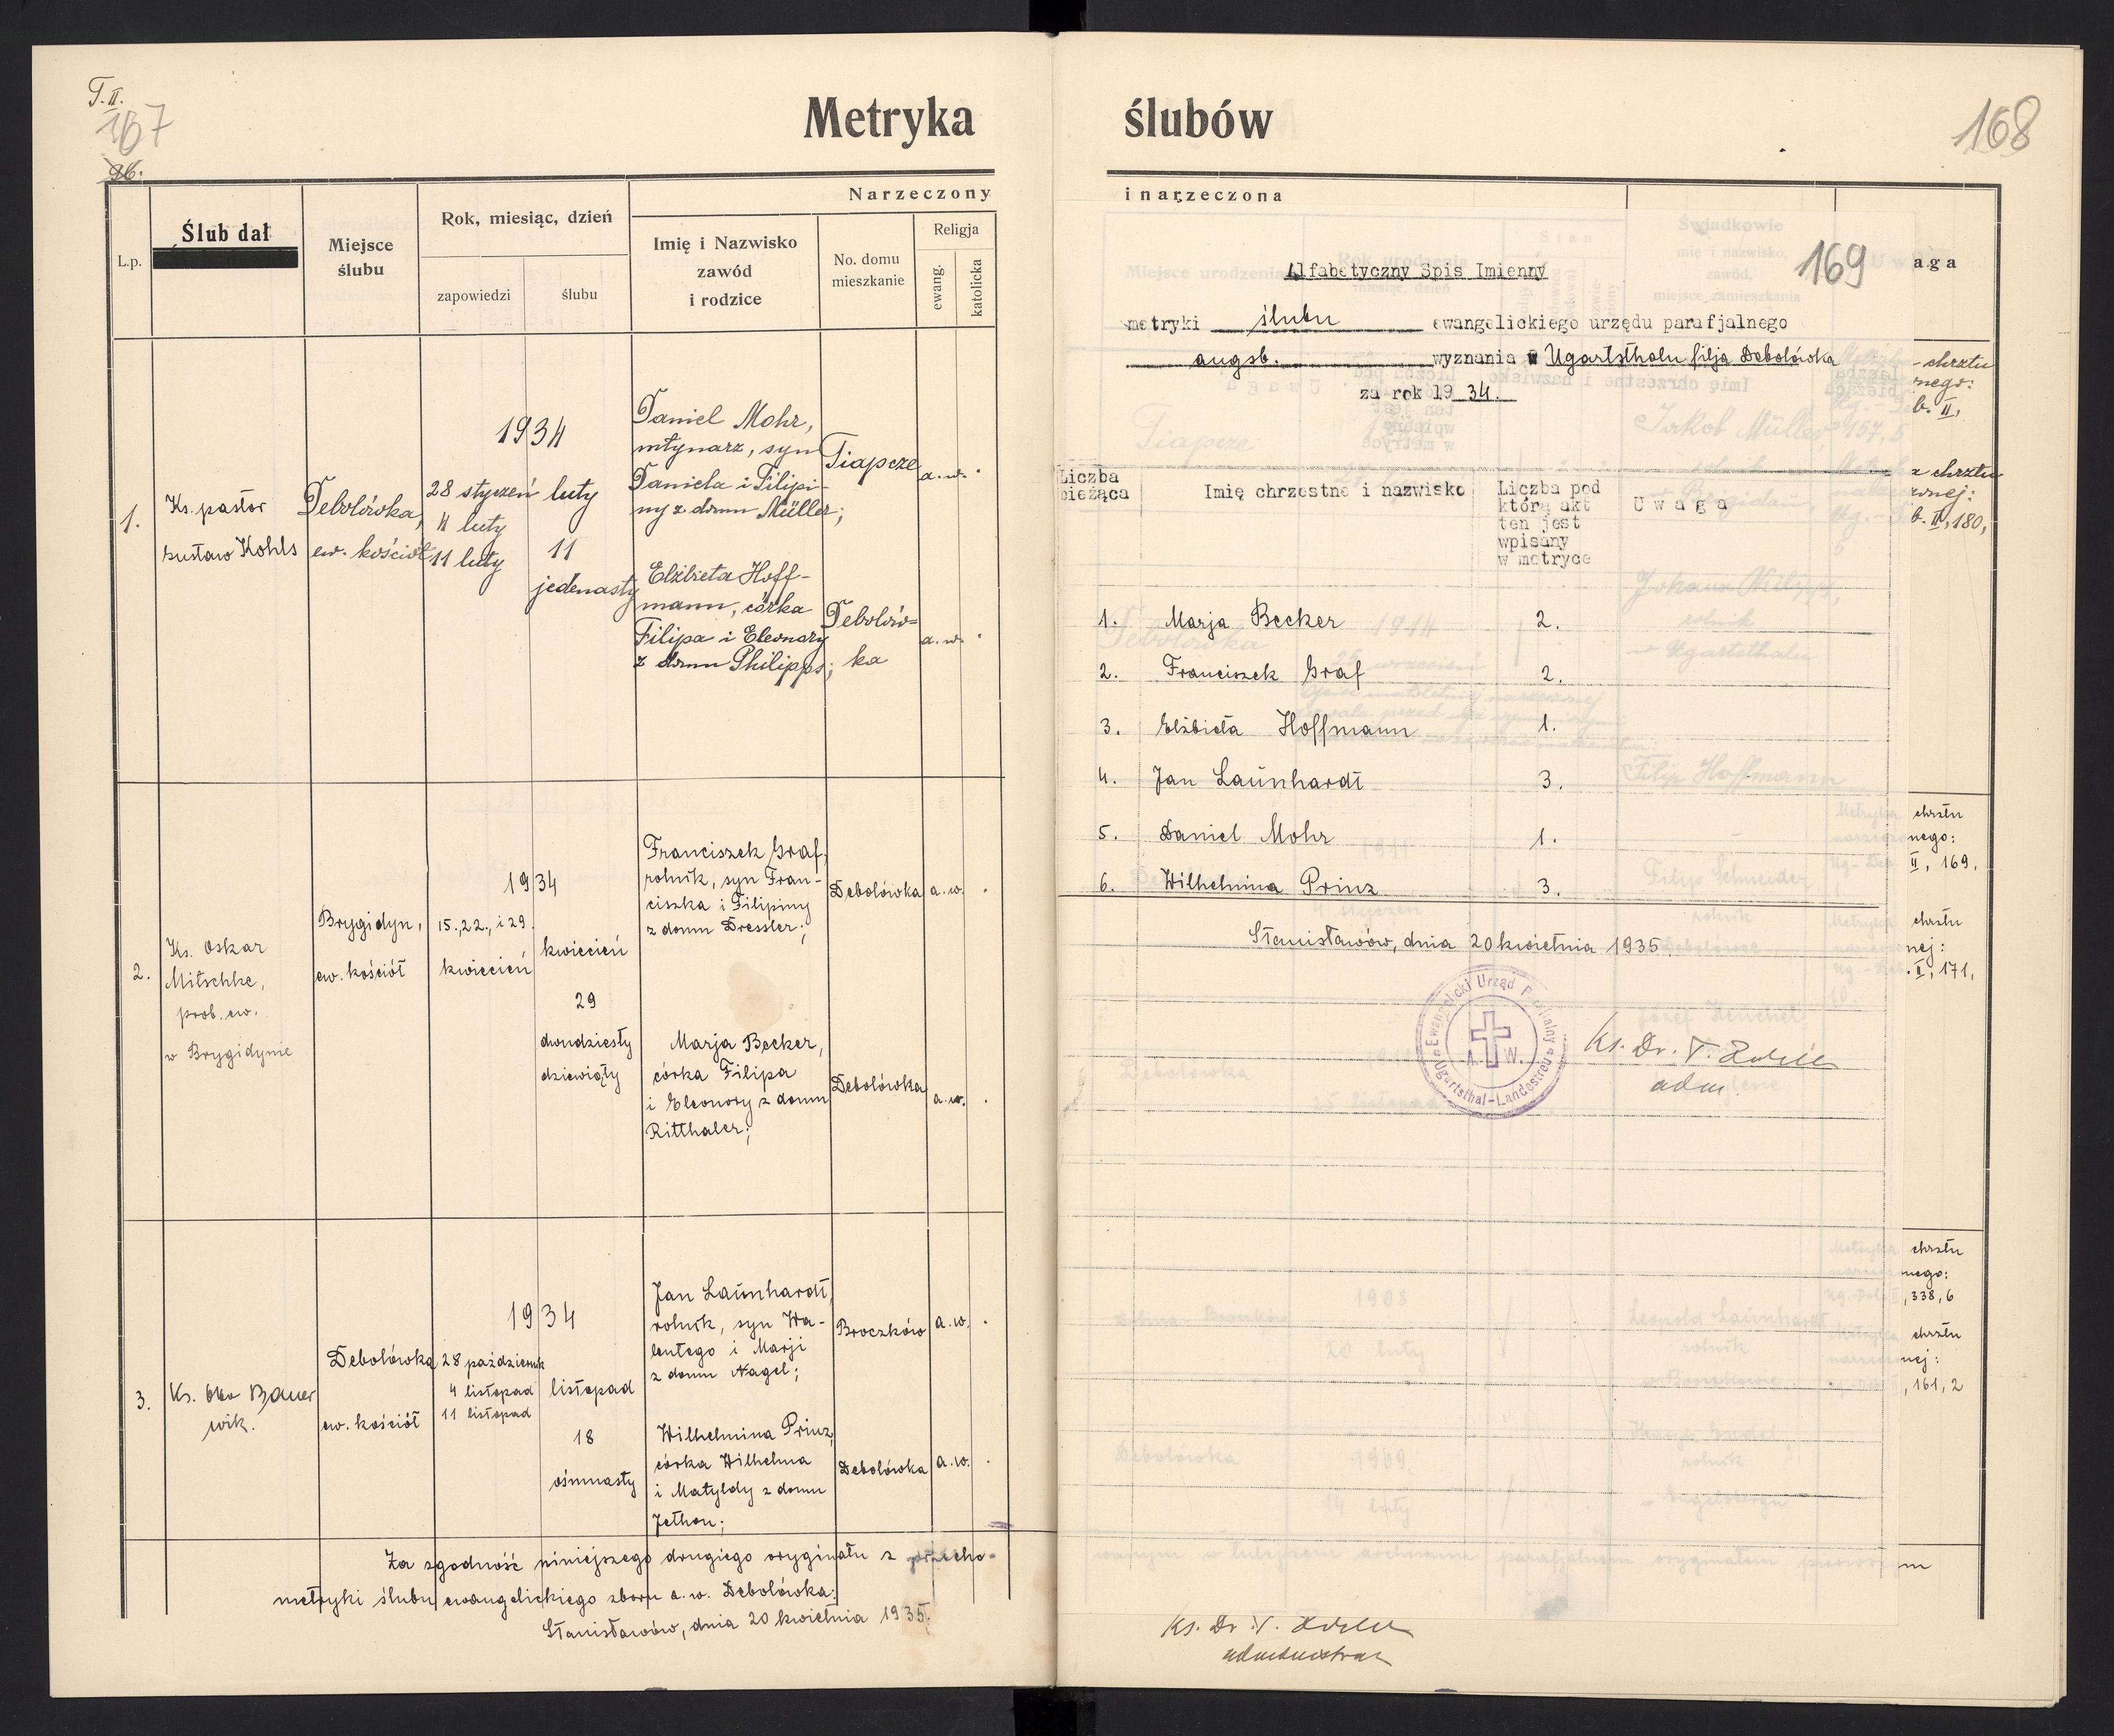 T. II.
167
96.
Metryka
L.p.
Ślub dał
Miejsce
ślubu
Rok, miesiąc, dzień
zapowiedzi
ślubu
Narzeczony
Imię i Nazwisko
zawód
i rodzice
No. domu
mieszkanie
Religja
ewang.
katolicka
1.
Ks. pastor
Gustaw Kohls
Debolówka,
ew. kościół
1934
28 styczeń
4 luty
11 luty
luty
11
jedenasty
Daniel Mohr,
młynarz, syn
Daniela i Filipi-
ny z domu Müller;
Tiapcze
a. w.
Elżbieta Hoff-
mann, córka
Filipa i Eleonory
z domu Philipps;
Debolów-
ka
a. w.
2.
Ks. Oskar
Mitschke,
prob. ew.
w Brygidynie
Brygidyn,
ew. kościół
1934
15., 22., i 29.
kwiecień
kwiecień
29
dwudziesty
dziewiąty
Franciszek Graf,
rolnik, syn Fran-
ciszka i Filipiny
z domu Dressler;
Debolówka
a. w.
Marja Becker,
córka Filipa
i Eleonory z domu
Ritthaler;
Debolówka
a. w.
3.
Ks. Otto Bauer
wik.
Debolówka
ew. kościół
1934
28 październik
4 listopad
11 listopad
listopad
18
ośmnasty
Jan Launhardt,
rolnik, syn Wa-
lentego i Marji
z domu Nagel;
Broczków
a. w.
Wilhelmina Prinz,
córka Wilhelma
i Matyldy z domu
Jethon;
Debolówka
a. w.
Za zgodność niniejszego drugiego oryginału z przecho-
metryki ślubu ewangelickiego zboru a. w. Debolówka:
Stanisławów, dnia 20 kwietnia 1935.
ślubów
168
i narzeczona
169
Alfabetyczny Spis Imienny
metryki ślubu ewangelickiego urzędu parafjalnego
augsb. wyznania w Ugartsthalu filja Debolówka
za rok 1934.
Liczba
bieżąca
Imię chrzestne i nazwisko
Liczba pod
którą akt
ten jest
wpisany
w metryce
Uwaga
1. Marja Becker 2.
2. Franciszek Graf 2.
3. Elżbieta Hoffmann 1.
4. Jan Launhardt 3.
5. Daniel Mohr 1.
6. Wilhelmina Prinz 3.
Stanisławów, dnia 20 kwietnia 1935.
Ewangelicki Urząd Parafialny
A. W.
Ugartsthal-Landestreu
Ks. Dr.
adm.
aga
chrztu
nego:
b. II,
z chrztu
b. II, 180,
chrztu
nego:
II, 169.
chrztu
nej:
I, 171,
chrztu
nego:
, 338, 6
chrztu
nej:
, 161, 2
Ks. Dr